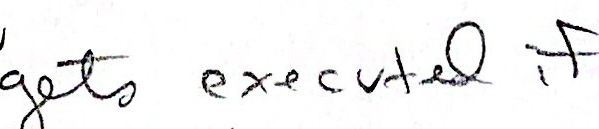 gets executed if